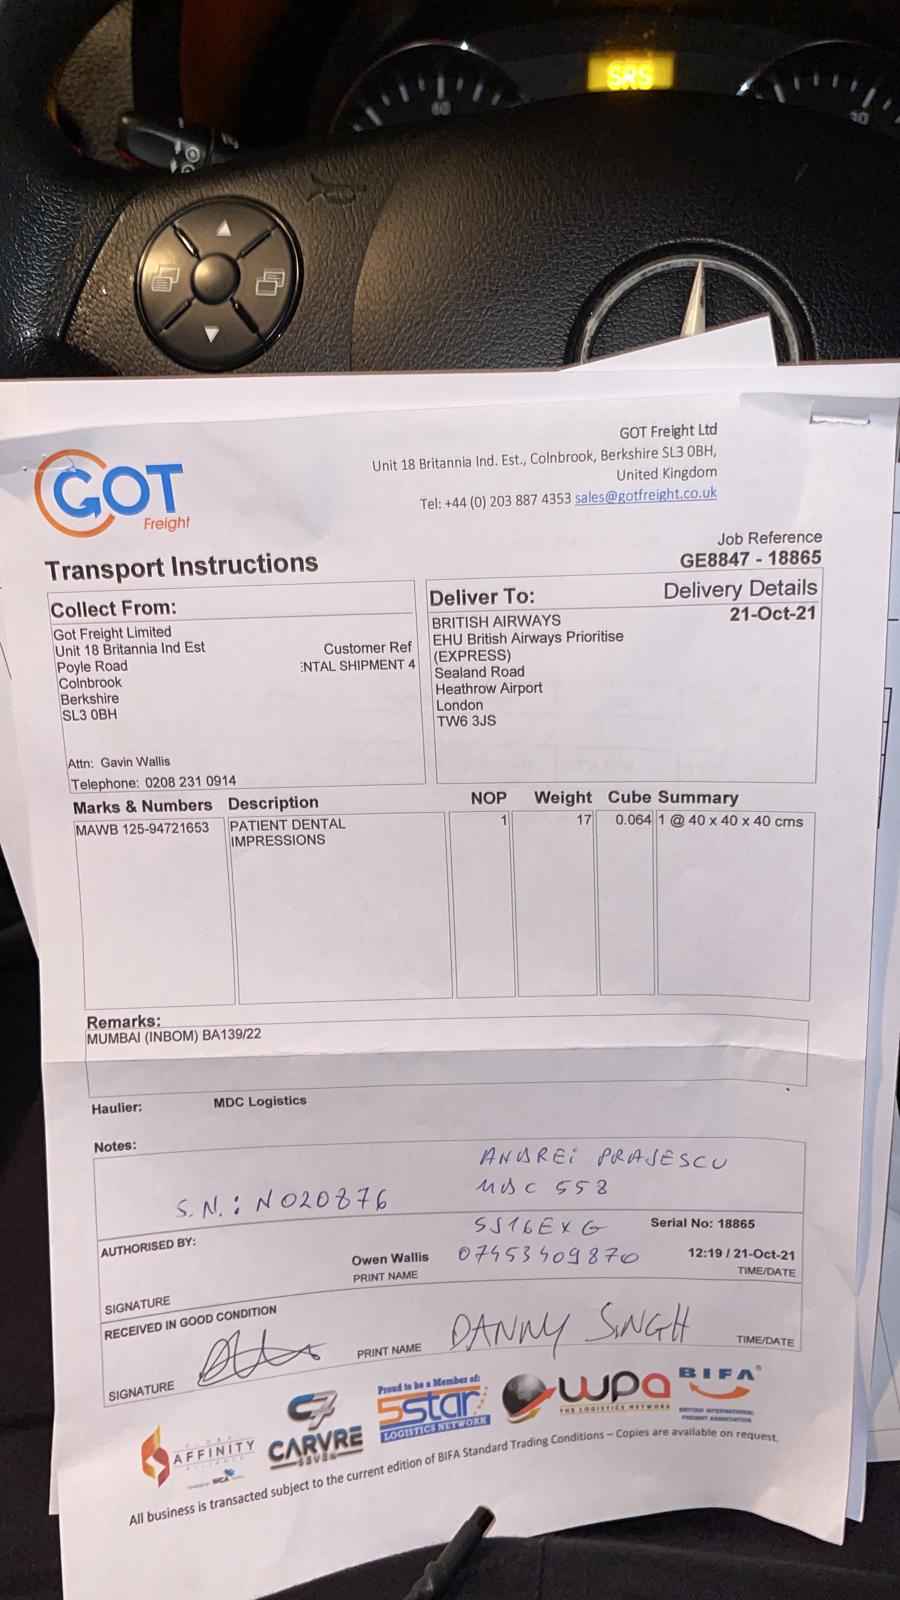 SRS
60
30
GOT
Freight
GOT Freight Ltd
Unit 18 Britannia Ind. Est., Colnbrook, Berkshire SL3 0BH,
United Kingdom
Tel: +44 (0) 203 887 4353 sales@gotfreight.co.uk
Job Reference
GE8847 - 18865
Transport Instructions
Collect From:
Got Freight Limited
Unit 18 Britannia Ind Est
Poyle Road
Colnbrook
Berkshire
SL3 0BH
Customer Ref
NTAL SHIPMENT 4
Attn: Gavin Wallis
Telephone: 0208 231 0914
Deliver To:
Delivery Details
21-Oct-21
BRITISH AIRWAYS
EHU British Airways Prioritise
(EXPRESS)
Sealand Road
Heathrow Airport
London
TW6 3JS
Marks & Numbers Description NOP Weight Cube Summary
MAWB 125-94721653 PATIENT DENTAL 1 17 0.064 1 @ 40 x 40 x 40 cms
IMPRESSIONS
Remarks:
MUMBAI (INBOM) BA139/22
Haulier: MDC Logistics
Notes:
ANDREI PRAJESCU
S.N.: N020876 MDC 558
SJ16EXG Serial No: 18865
AUTHORISED BY:
Owen Wallis 07453409870 12:19 / 21-Oct-21
PRINT NAME TIME/DATE
SIGNATURE
RECEIVED IN GOOD CONDITION
SIGNATURE PRINT NAME DANNY SINGH TIME/DATE
AFFINITY
WCA
C7
CARVRE
Proud to be a Member of:
5star
LOGISTICS NETWORK
wpa
THE LOGISTICS NETWORK
BIFA
BRITISH INTERNATIONAL
FREIGHT ASSOCIATION
All business is transacted subject to the current edition of BIFA Standard Trading Conditions – Copies are available on request.